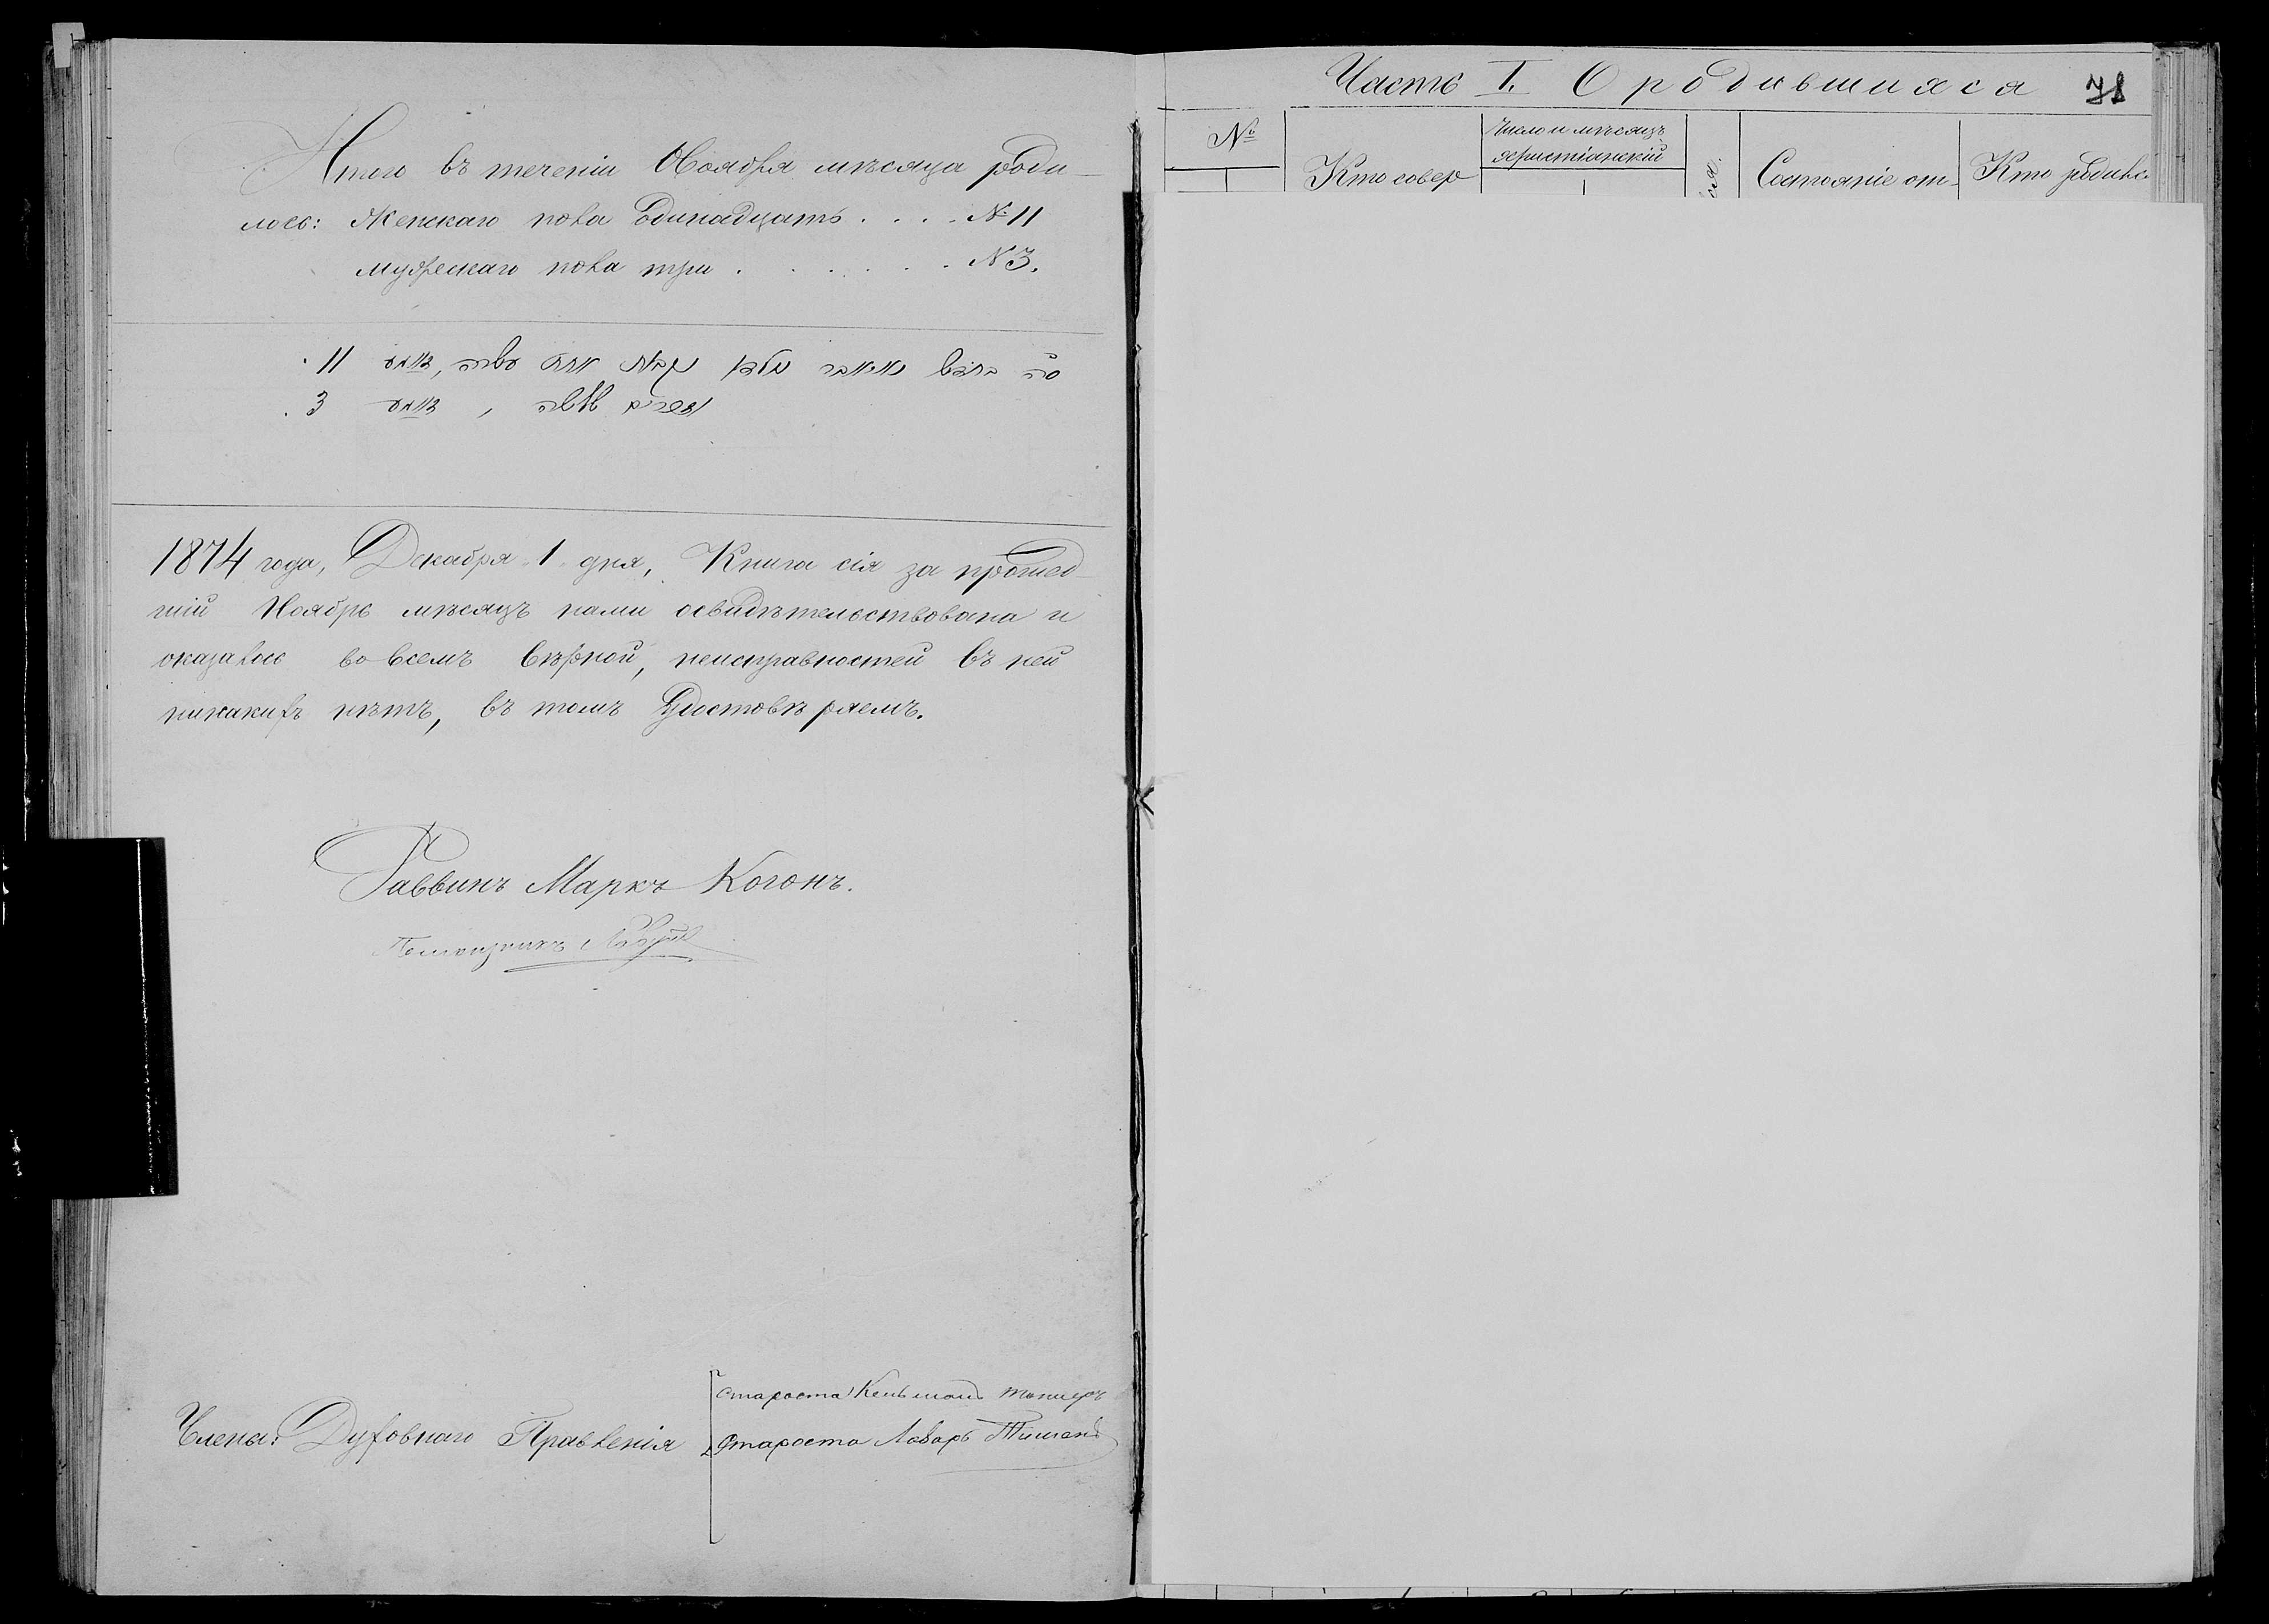 Итого въ теченіи Ноября мѣсяца роди-
лось: Женскаго пола Одинадцать . . . . № 11
мужескаго пола три . . . . . . . № 3.
11
3
1874 года, Декабря 1 дня, Книга сія за прошед-
шій Ноябрь мѣсяцъ нами освидѣтельствована и
оказалось во всемъ вѣрной, неисправностей въ ней
никакихъ нѣтъ, въ томъ Удостовѣряемъ.
Раввинъ Маркъ Когонъ.
Помощникъ
Члены: Духовнаго Правленія
Староста Кельманъ
Староста Лазарь
Часть I. О родившихся 78
№
Кто совер
Число и мѣсяцъ
христіанскій
Состояніе от-
Кто родился